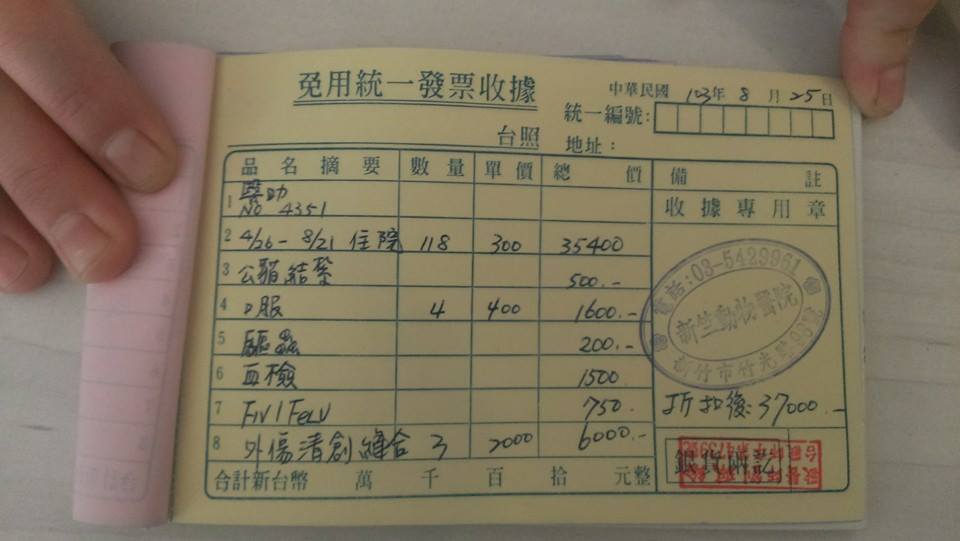 免用統一發票收據
中華民國 103年 8 月 25日
統一編號:
台照 地址:
品名摘要 數量 單價 總價 備註
收據專用章
1 醫助
No 4351
2 4/26-8/21 住院 118 300 35400
3 公貓結紮 500.-
4 口服 4 400 1600.-
5 驅蟲 200.-
6 血檢 1500
7 FIV/FeLV 750.-
8 外傷清創縫合 3 2000 6000.-
電話:03-5429961
新竺動物醫院
新竹市竹光路
折扣後:37000.-
銀貨兩訖
合計新台幣 萬 千 百 拾 元整